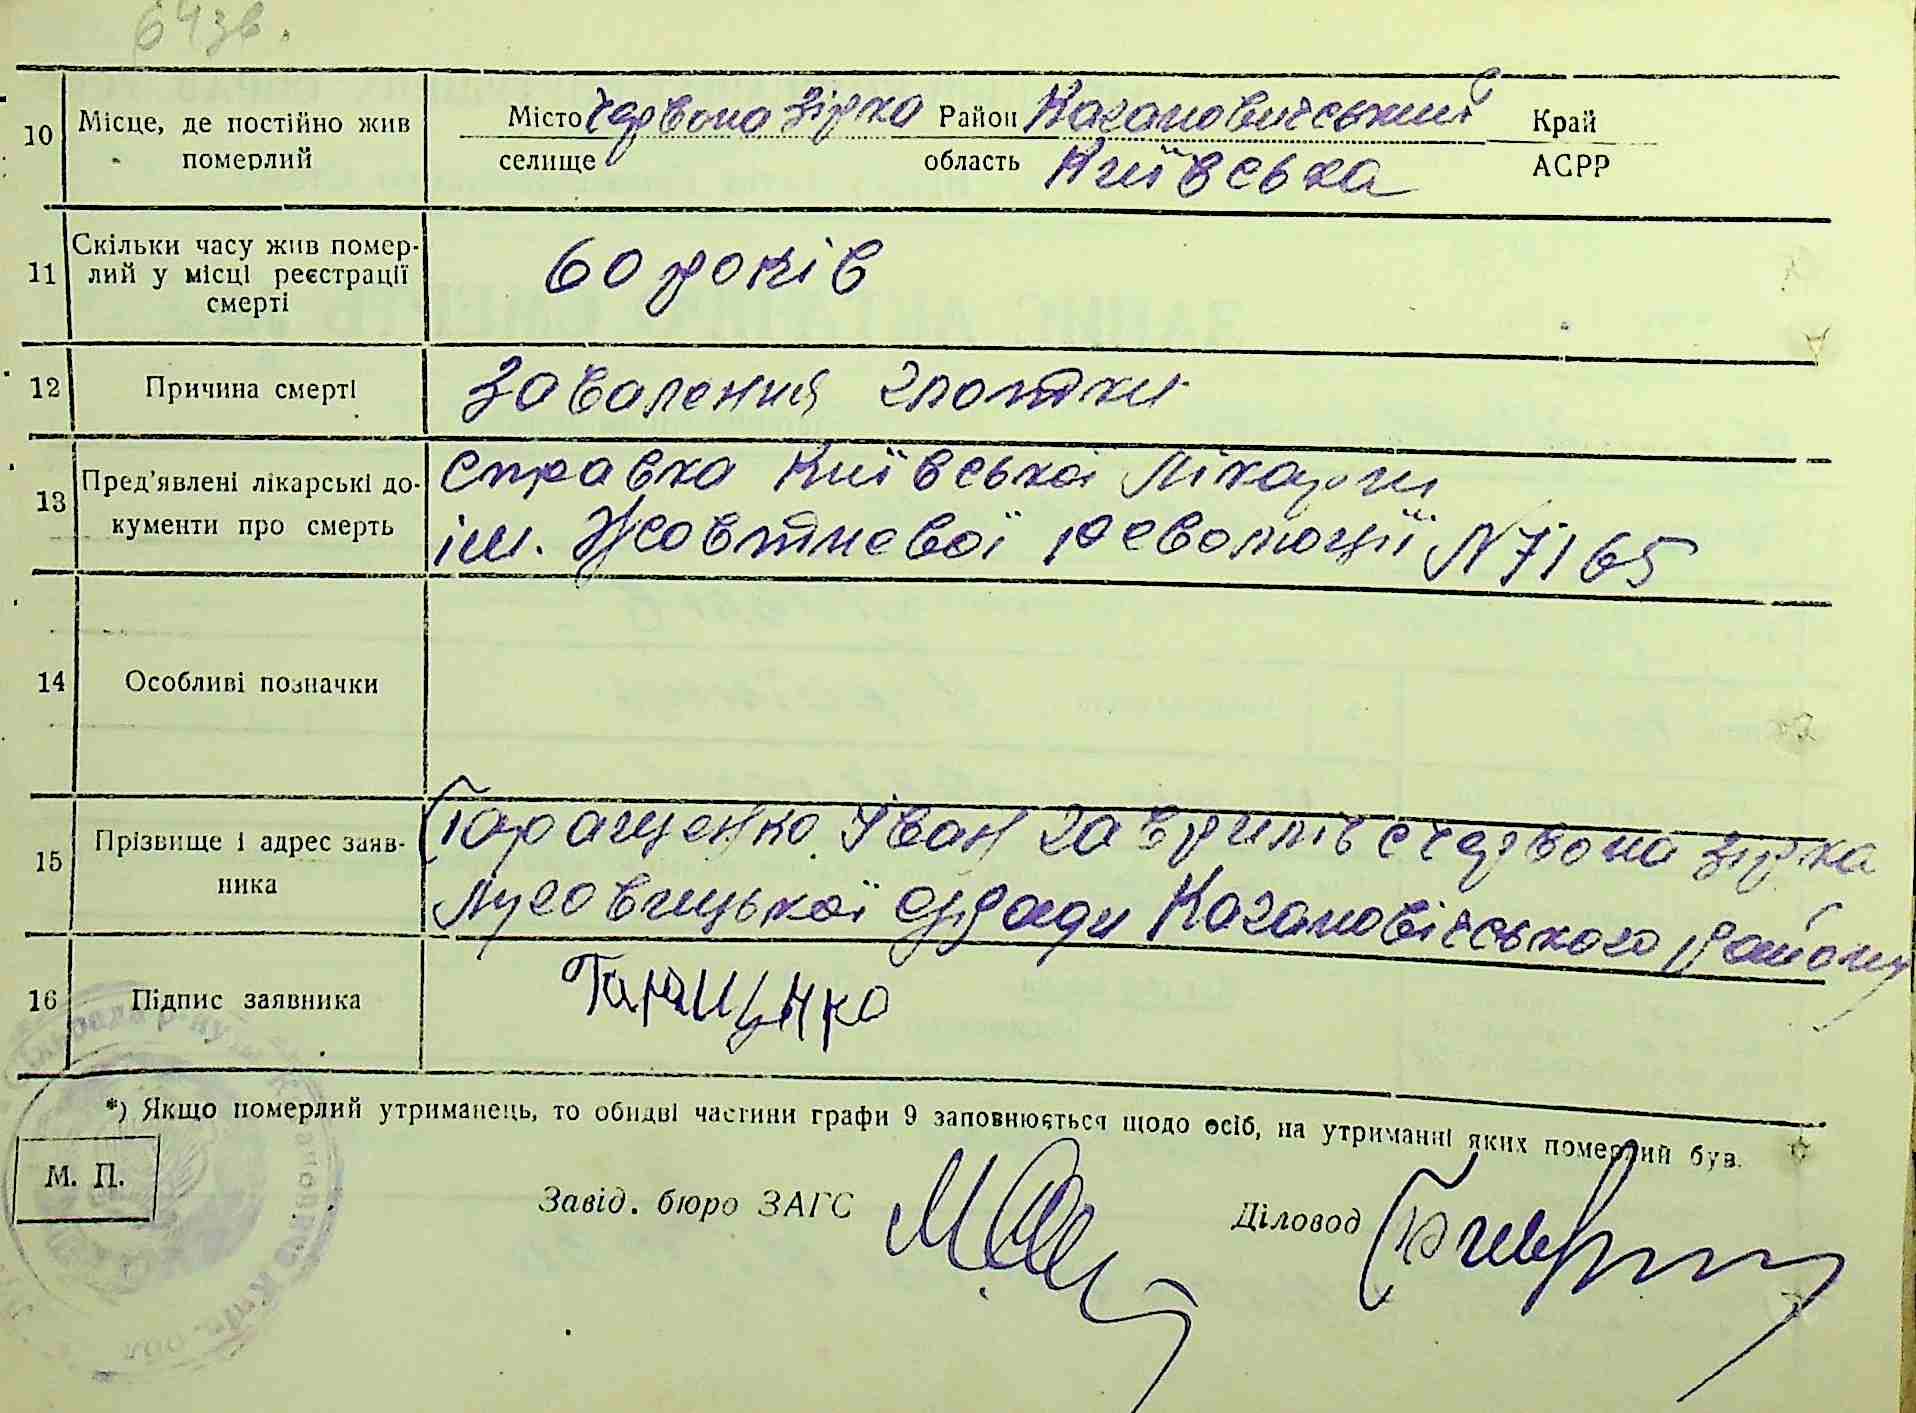 64зв.
10 Місце, де постійно жив померлий
Місто Червона Зірка Район Кагановичський Край
селище область Київська АСРР
11 Скільки часу жив помер-
лий у місці реєстрації
смерті
60 років
12 Причина смерті
Заваления глотки
13 Пред'явлені лікарські до-
кументи про смерть
Справка Київської лікарни
ім. Жовтневої революції N 7165
14 Особливі позначки
15 Прізвище і адрес заяв-
ника
Таращенко Іван Гаврилів с Червона Зірка
Лусовицької с/ради Кагановічського району
16 Підпис заявника
Таращнко
*) Якщо померлий утриманець, то обидві частини графи 9 заповнюється щодо осіб, на утриманні яких померлий був.
М. П.
Завід. бюро ЗАГС
Діловод